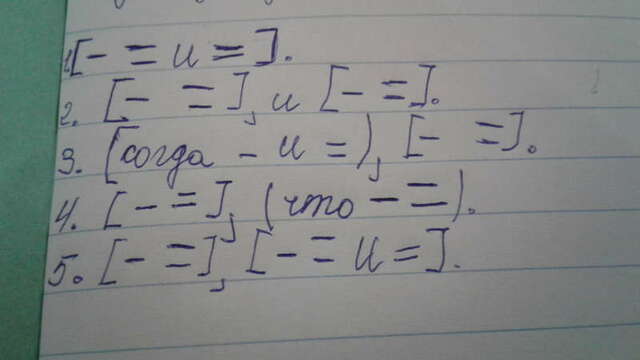 1. [- = и =].
2. [- =], и [- =].
3. (когда - и =), [- =].
4. [- =], (что - =).
5. [- =], [- = и =].